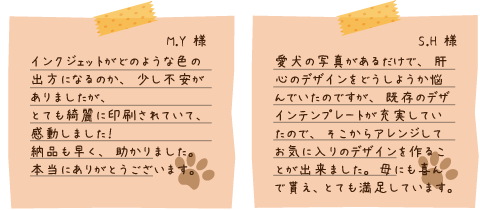 M.Y 様
インクジェットがどのような色の
出方になるのか、少し不安が
ありましたが、
とても綺麗に印刷されていて、
感動しました!
納品も早く、助かりました。
本当にありがとうございます。
S.H 様
愛犬の写真があるだけで、肝
心のデザインをどうしようか悩
んでいたのですが、既存のデザ
インテンプレートが充実してい
たので、そこからアレンジして
お気に入りのデザインを作るこ
とが出来ました。母にも喜ん
で貰え、とても満足しています。